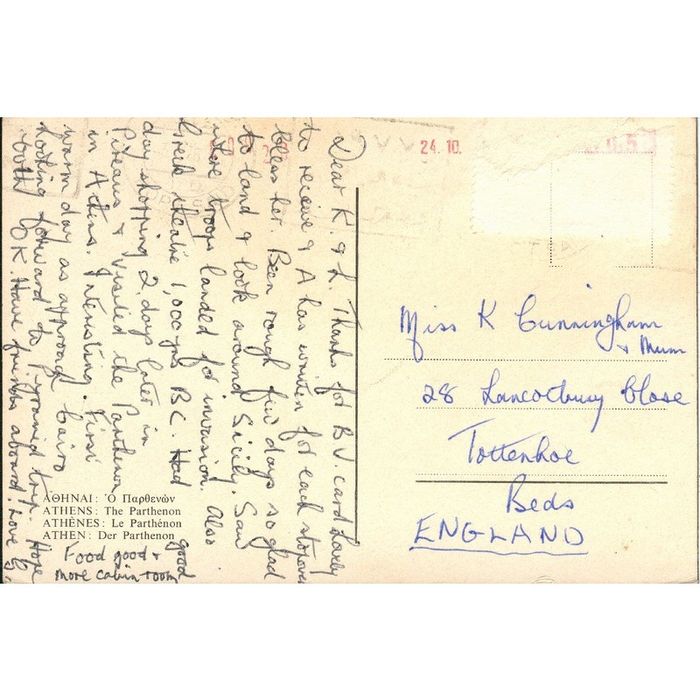 Dear K. & L. Thanks for B.V. card. Lovely
to receive & A has written for each stopover
bless her. Been rough few days so glad
to land & look around Sicily. Saw
where troops landed for invasion. Also
Greek theatre 1,000 yrs B.C. Had good
day shopping 2 days later in
Piraeus & visited the Parthenon
in Athens. Interesting. First
warm day as approach Cairo
Looking forward to Pyramid trip. Hope
both OK. Have friends aboard. Love
Food good &
more cabin room
ΑΘΗΝΑΙ: Ὁ Παρθενών
ATHENS: The Parthenon
ATHÈNES: Le Parthénon
ATHEN: Der Parthenon
24.10.
Miss K Cunningham
& Mum
28 Close
Totternhoe
Beds
ENGLAND